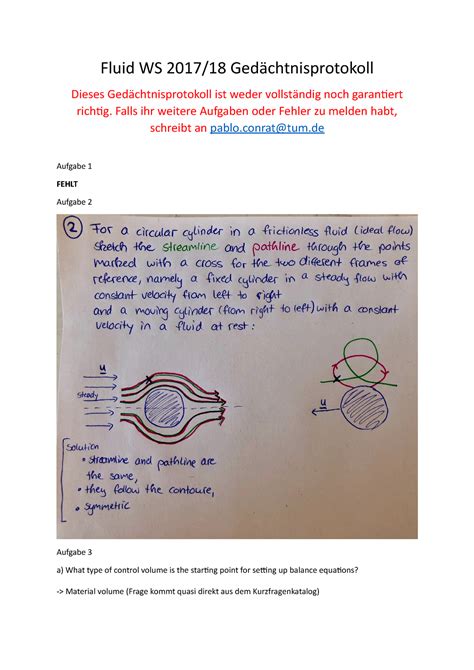 Fluid WS 2017/18 Gedächtnisprotokoll
Dieses Gedächtnisprotokoll ist weder vollständig noch garantiert
richtig. Falls ihr weitere Aufgaben oder Fehler zu melden habt,
schreibt an pablo.conrat@tum.de
Aufgabe 1
FEHLT
Aufgabe 2
2 For a circular cylinder in a frictionless fluid (ideal flow)
sketch the streamline and pathline through the points
marked with a cross for the two different frames of
reference, namely a fixed cylinder in a steady flow with
constant velocity from left to right
and a moving cylinder (from right to left) with a constant
velocity in a fluid at rest:
u
steady
u
Solution
• streamline and pathline are
the same,
• they follow the contoure,
• symmetric
Aufgabe 3
a) What type of control volume is the starting point for setting up balance equations?
-> Material volume (Frage kommt quasi direkt aus dem Kurzfragenkatalog)